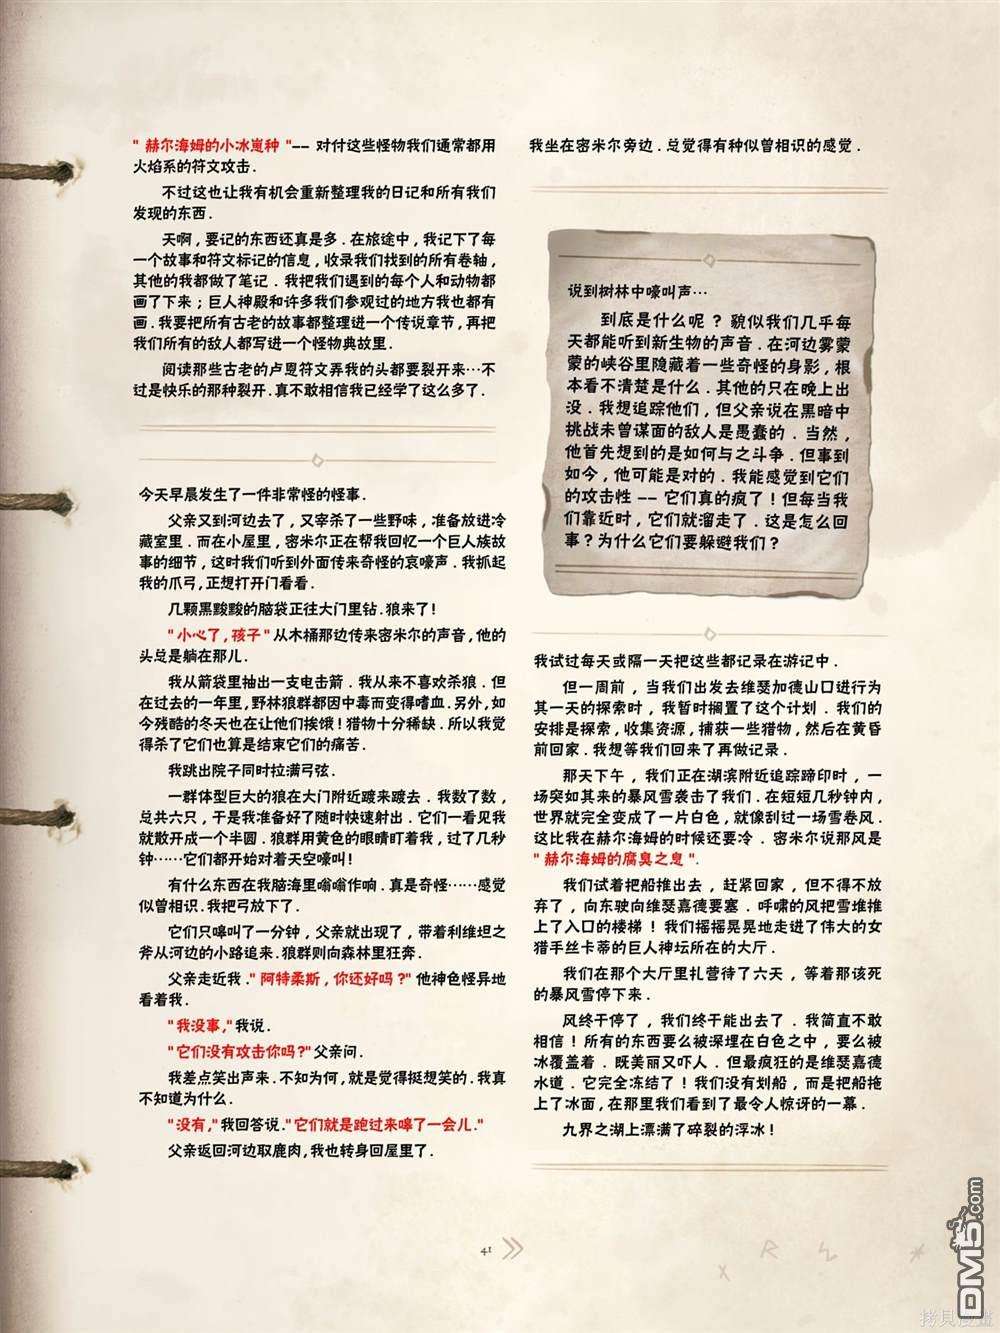 "赫尔海姆的小冰崽种"-- 对付这些怪物我们通常都用
火焰系的符文攻击.
不过这也让我有机会重新整理我的日记和所有我们
发现的东西.
天啊，要记的东西还真是多．在旅途中，我记下了每
一个故事和符文标记的信息，收录我们找到的所有卷轴，
其他的我都做了笔记．我把我们遇到的每个人和动物都
画了下来；巨人神殿和许多我们参观过的地方我也都有
画．我要把所有古老的故事都整理进一个传说章节，再把
我们所有的敌人都写进一个怪物典故里.
阅读那些古老的卢恩符文弄我的头都要裂开来…不
过是快乐的那种裂开．真不敢相信我已经学了这么多了．
今天早晨发生了一件非常怪的怪事.
父亲又到河边去了，又宰杀了一些野味，准备放进冷
藏室里．而在小屋里，密米尔正在帮我回忆一个巨人族故
事的细节，这时我们听到外面传来奇怪的哀嚎声．我抓起
我的爪弓，正想打开门看看.
几颗黑黢黢的脑袋正往大门里钻．狼来了！
"小心了，孩子"从木桶那边传来密米尔的声音，他的
头总是躺在那儿.
我从箭袋里抽出一支电击箭．我从来不喜欢杀狼．但
在过去的一年里，野林狼群都因中毒而变得嗜血．另外，如
今残酷的冬天也在让他们挨饿！猎物十分稀缺．所以我觉
得杀了它们也算是结束它们的痛苦.
我跳出院子同时拉满弓弦.
一群体型巨大的狼在大门附近踱来踱去．我数了数，
总共六只，于是我准备好了随时快速射出．它们一看见我
就散开成一个半圆．狼群用黄色的眼睛盯着我，过了几秒
钟……它们都开始对着天空嚎叫！
有什么东西在我脑海里嗡嗡作响．真是奇怪……感觉
似曾相识．我把弓放下了.
它们只嗥叫了一分钟，父亲就出现了，带着利维坦之
斧从河边的小路追来．狼群则向森林里狂奔.
父亲走近我．"阿特柔斯，你还好吗？"他神色怪异地
看着我.
"我没事，"我说.
"它们没有攻击你吗？"父亲问.
我差点笑出声来．不知为何，就是觉得挺想笑的．我真
不知道为什么.
"没有，"我回答说．"它们就是跑过来嗥了一会儿．"
父亲返回河边取鹿肉，我也转身回屋里了.
我坐在密米尔旁边．总觉得有种似曾相识的感觉．
说到树林中嚎叫声…
到底是什么呢？貌似我们几乎每
天都能听到新生物的声音．在河边雾蒙
蒙的峡谷里隐藏着一些奇怪的身影，根
本看不清楚是什么．其他的只在晚上出
没．我想追踪他们，但父亲说在黑暗中
挑战未曾谋面的敌人是愚蠢的．当然，
他首先想到的是如何与之斗争．但事到
如今，他可能是对的．我能感觉到它们
的攻击性 -- 它们真的疯了！但每当我
们靠近时，它们就溜走了．这是怎么回
事？为什么它们要躲避我们？
我试过每天或隔一天把这些都记录在游记中.
但一周前，当我们出发去维瑟加德山口进行为
其一天的探索时，我暂时搁置了这个计划．我们的
安排是探索，收集资源，捕获一些猎物，然后在黄昏
前回家．我想等我们回来了再做记录．
那天下午，我们正在湖滨附近追踪蹄印时，一
场突如其来的暴风雪袭击了我们．在短短几秒钟内，
世界就完全变成了一片白色，就像刮过一场雪卷风．
这比我在赫尔海姆的时候还要冷．密米尔说那风是
"赫尔海姆的腐臭之息"．
我们试着把船推出去，赶紧回家，但不得不放
弃了，向东驶向维瑟嘉德要塞．呼啸的风把雪堆推
上了入口的楼梯！我们摇摇晃晃地走进了伟大的女
猎手丝卡蒂的巨人神坛所在的大厅．
我们在那个大厅里扎营待了六天，等着那该死
的暴风雪停下来．
风终于停了，我们终于能出去了．我简直不敢
相信！所有的东西要么被深埋在白色之中，要么被
冰覆盖着．既美丽又吓人．但最疯狂的是维瑟嘉德
水道．它完全冻结了！我们没有划船，而是把船拖
上了冰面，在那里我们看到了最令人惊讶的一幕．
九界之湖上漂满了碎裂的浮冰！
41
DM5.com
拷贝漫畫